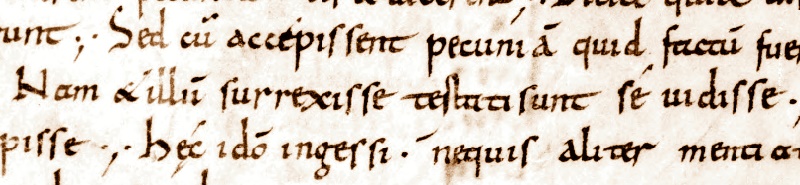 runt ;· Sed cū accepissent pecuniā quid factū fue
Nam & illū surrexisse testati sunt sé uidisse ·
pisse ·,· hęc idō ingessi · nequis aliter menti